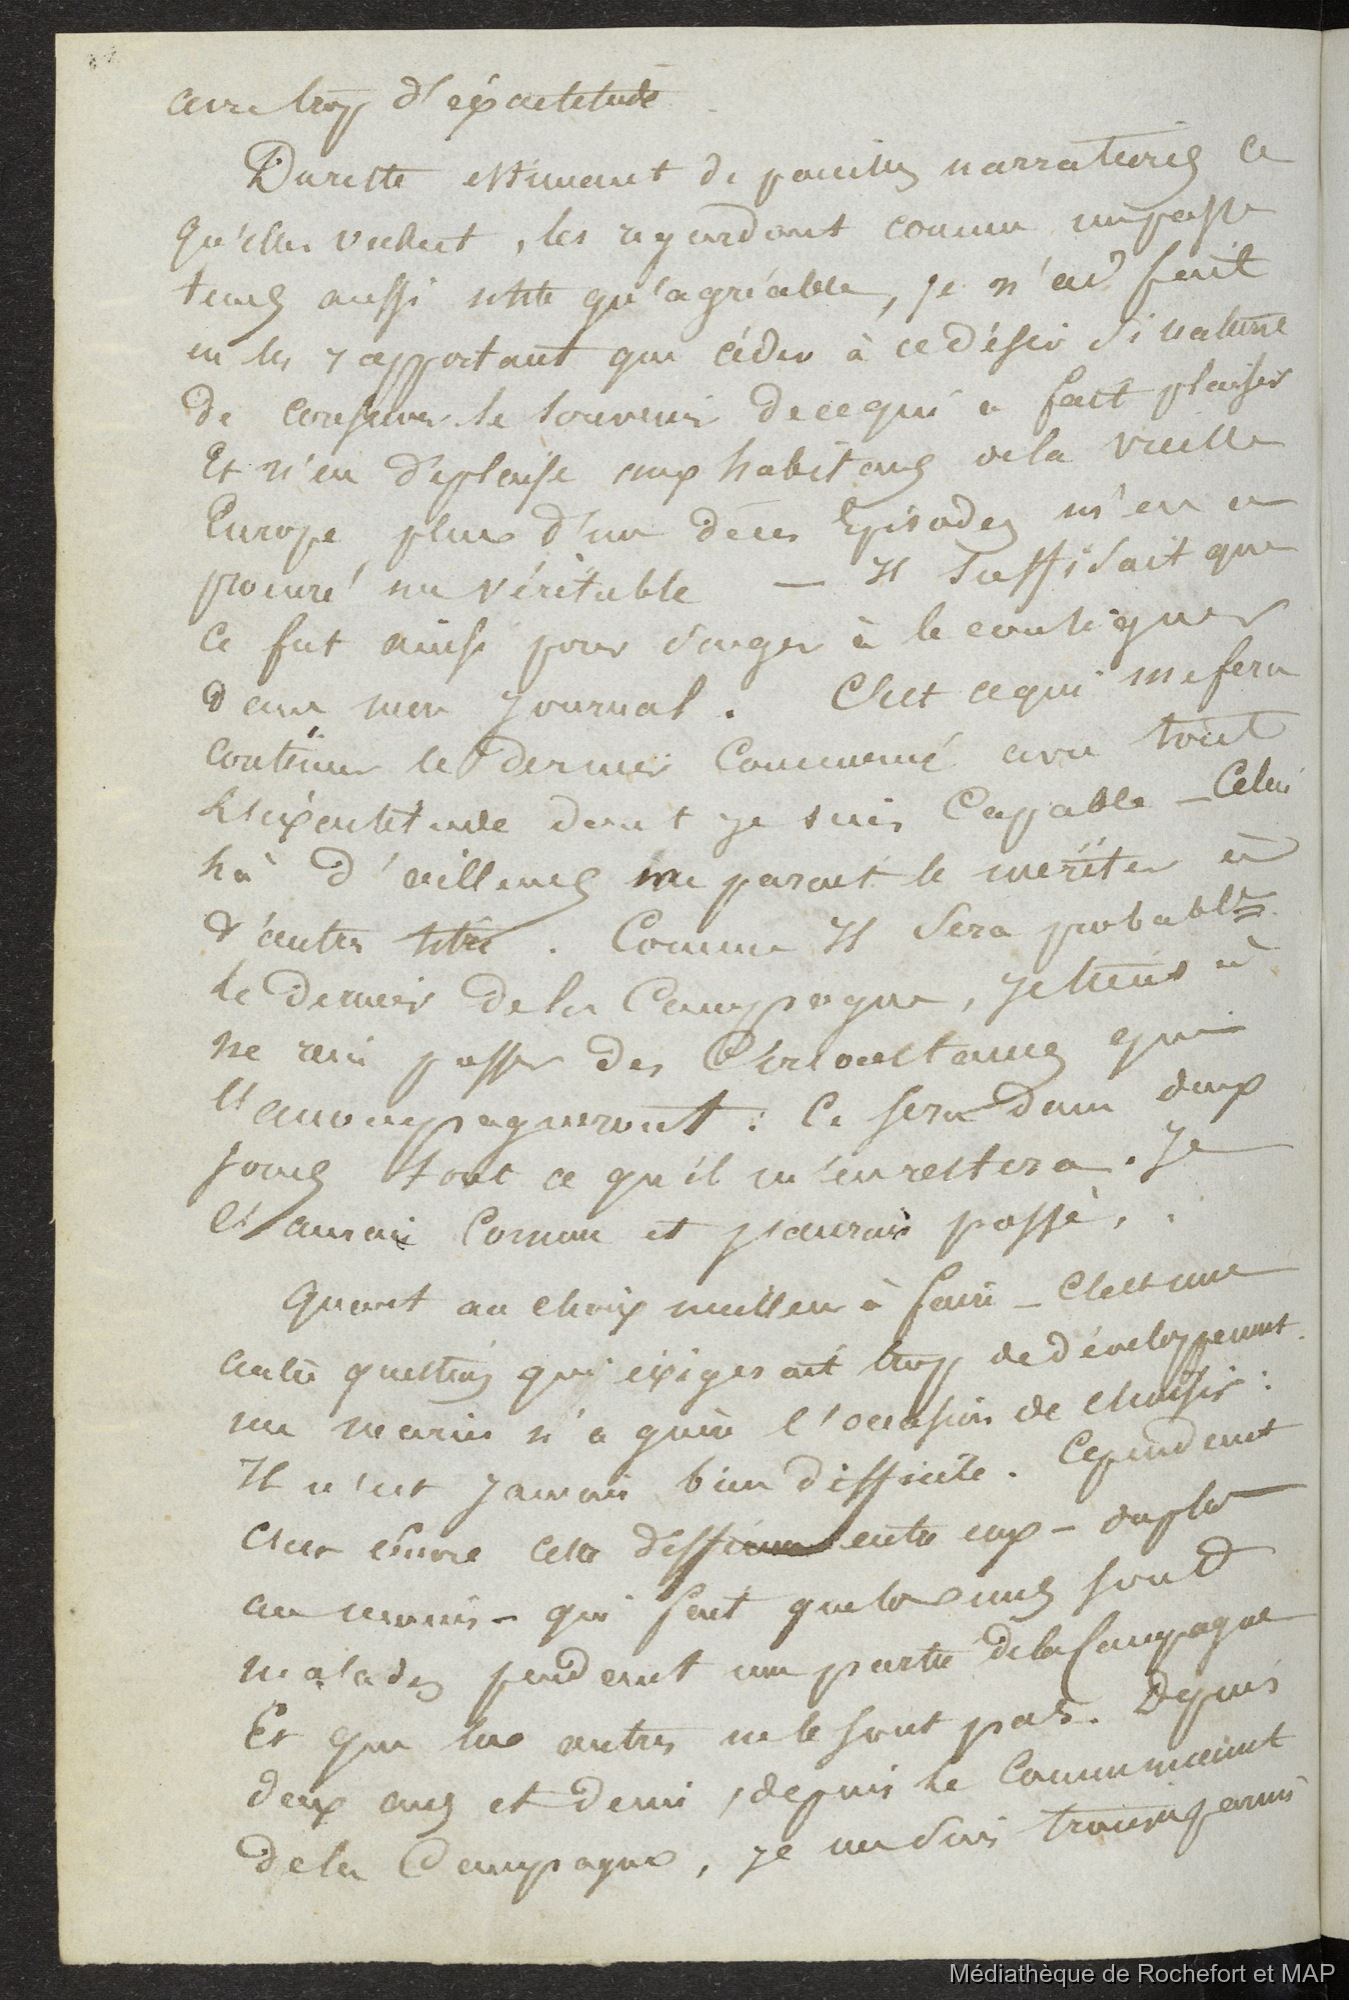 avec trop d'éxactitude
Dureste estimant de pareilles narrations ce
qu'elles valent, les regardant comme un passe
tems aussi utile qu'agréable, je n'ai fait
en les rapportant que céder à ce désir si naturel
de conserver le souvenir de ce qui a fait plaisir
Et n'en déplaise aux habitans de la vieille
Europe plus d'un de ces Episodes m'en a
procuré un véritable — Il suffisait que
ce fut ainsi pour songer à le consigner
dans mon Journal. C'est ce qui me fera
continuer le dernier commencé avec toute
l'exactitude dont je suis Capable – Celui
là d'ailleurs me parait le mériter à
d'autres titre. Comme Il sera probablt
le dernier de la Campagne, je tiens à
ne rien passer des Circonstances qui
l'accompagneront : Ce sera dans deux
jours tout ce qu'il m'en restera. Je
l'aurai connu et j'aurais passé.
Quant au choix meilleur à faire – C'est une
autre question qui éxigerait trop de développement.
un marin n'a guère l'occasion de choisir :
Il n'est jamais bien difficile. Cependant
encore cette entre eux –
au moins – qui fait que les uns sont
malades pendant une partie de la Campagne
Et que les autres ne le sont pas. Depuis
deux ans et demi, depuis le Commencement
de la Campagne, je me suis trouvé parmi